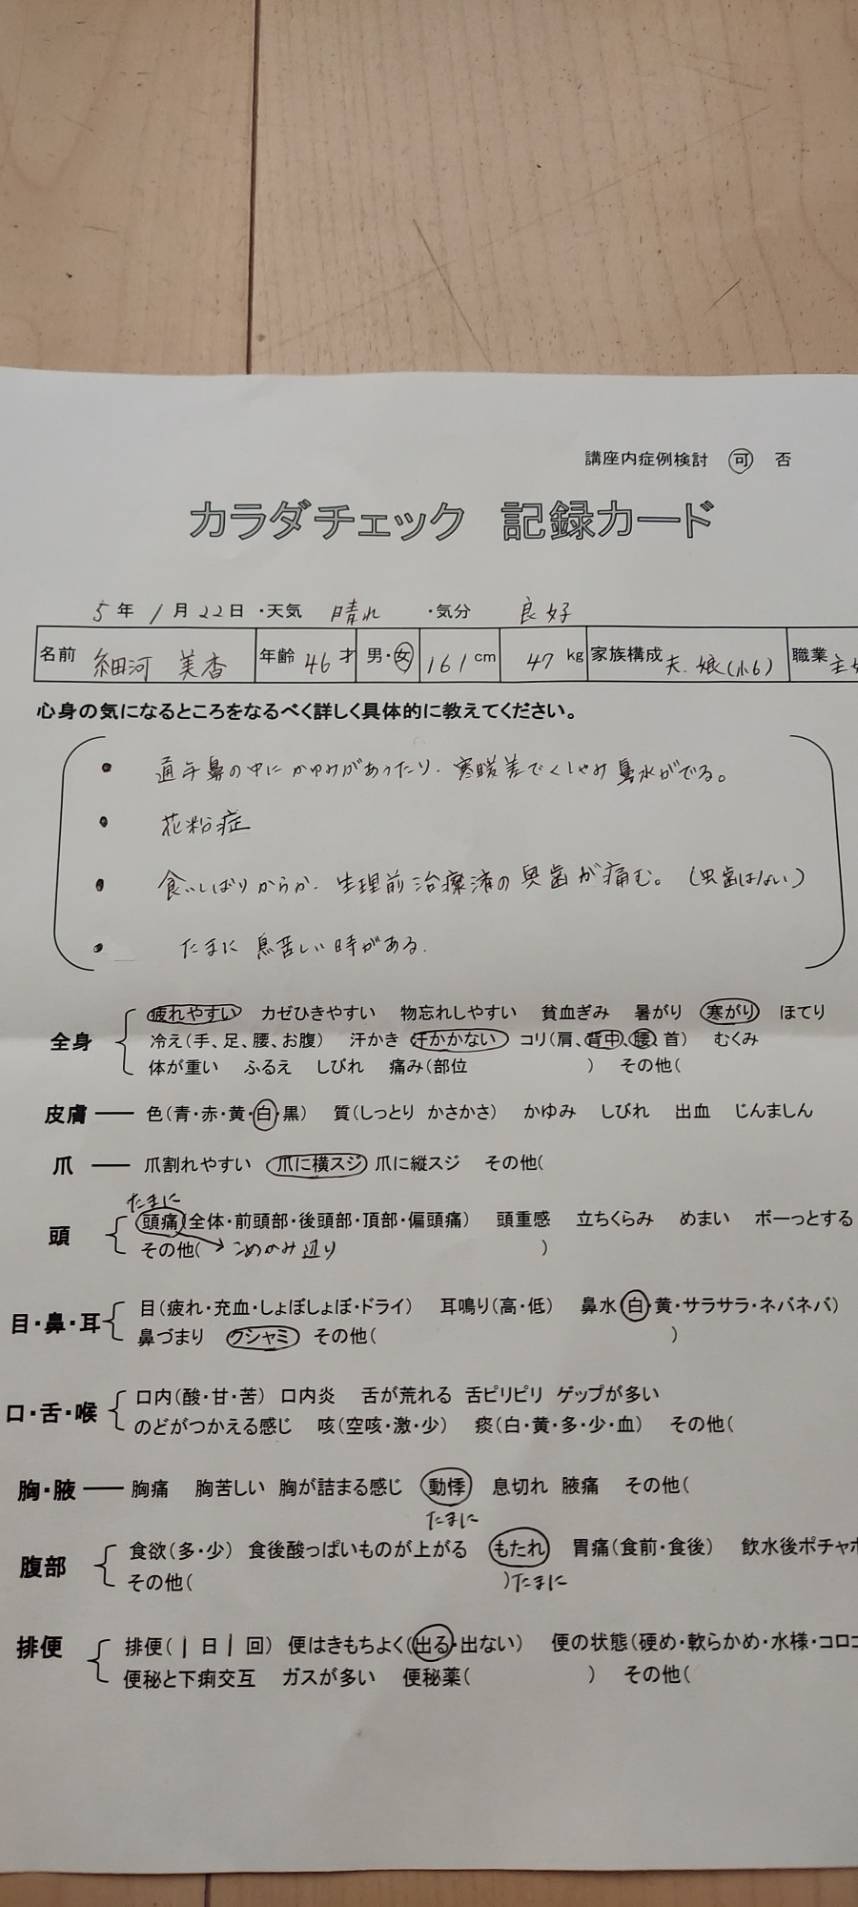 講座内症例検討 可 否
カラダチェック 記録カード
5年 1月22日 ・天気 晴れ ・気分 良好
名前 細河 美香 年齢 46才 男・女 161cm 47kg 家族構成 夫、娘(小6) 職業 主
心身の気になるところをなるべく詳しく具体的に教えてください。
● 通年鼻の中にかゆみがあったり、寒暖差でくしゃみ鼻水がでる。
● 花粉症
● 食いしばりからか、生理前治療済の奥歯が痛む。(虫歯はない)
● たまに 息苦しい時がある.
全身 疲れやすい カゼひきやすい 物忘れしやすい 貧血ぎみ 暑がり 寒がり ほてり
冷え(手、足、腰、お腹) 汗かき 汗かかない コリ(肩、背中、腰、首) むくみ
体が重い ふるえ しびれ 痛み(部位 ) その他(
皮膚 ― 色(青・赤・黄・白・黒) 質(しっとり かさかさ) かゆみ しびれ 出血 じんましん
爪 ― 爪割れやすい 爪に横スジ 爪に縦スジ その他(
たまに
頭 頭痛(全体・前頭部・後頭部・頂部・偏頭痛) 頭重感 立ちくらみ めまい ボーっとする
その他(→ こめかみ辺り )
目・鼻・耳 目(疲れ・充血・しょぼしょぼ・ドライ) 耳鳴り(高・低) 鼻水(白・黄・サラサラ・ネバネバ)
鼻づまり クシャミ その他( )
口・舌・喉 口内(酸・甘・苦) 口内炎 舌が荒れる 舌ピリピリ ゲップが多い
のどがつかえる感じ 咳(空咳・激・少) 痰(白・黄・多・少・血) その他(
胸・腋 ― 胸痛 胸苦しい 胸が詰まる感じ 動悸 息切れ 腋痛 その他(
たまに
腹部 食欲(多・少) 食後酸っぱいものが上がる もたれ 胃痛(食前・食後) 飲水後ポチャポ
その他( )たまに
排便 排便(1日1回) 便はきもちよく(出る・出ない) 便の状態(硬め・軟らかめ・水様・コロコ
便秘と下痢交互 ガスが多い 便秘薬( ) その他(